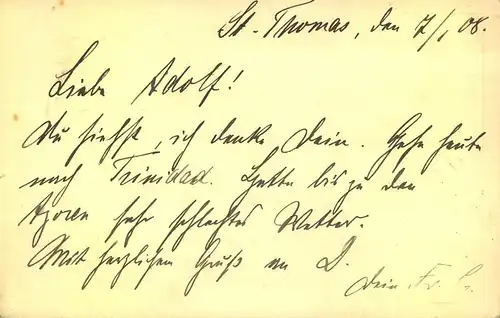 St. Thomas, den 7/1 08.
Liebe Adolf!
Du siehst, ich denke Dein. Gehe heute
nach Trinidad. Hatte bis zu den
Azoren sehr schlechtes Wetter.
Mit herzlichem Gruß an D.
Dein Fr.